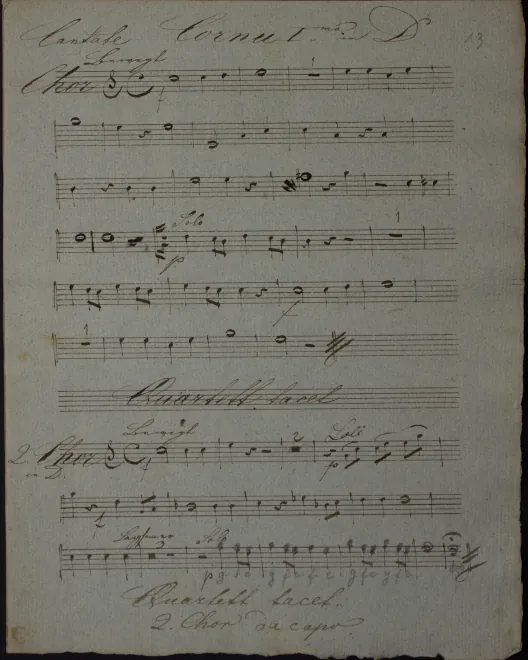 Cantate Cornu Imo in D 13
Bewegt
Chor
f
Solo
1
p
f
1
Quartett tacet
Bewegt
2
Solo
2. Chor
in D.
f
p
Langsamer Solo
Quartett tacet.
2. Chor da capo.